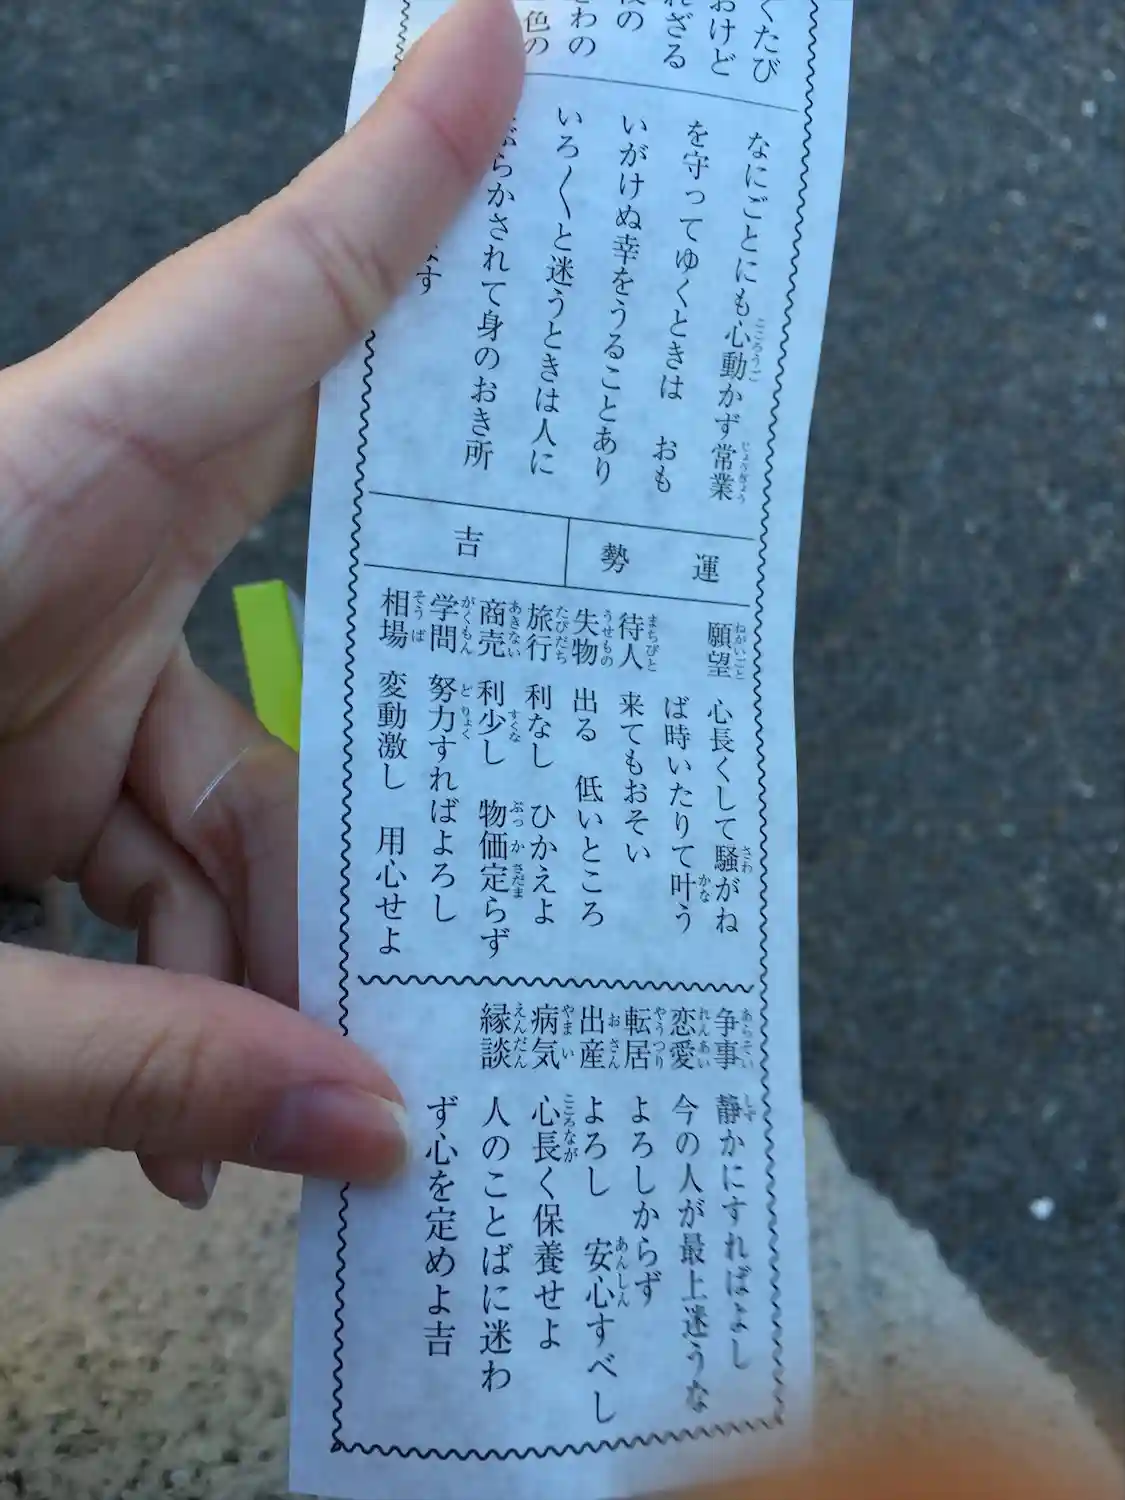 くたび
おけど
れざる
の
わの
色の
なにごとにも心動かず常業
を守ってゆくときは　おも
いがけぬ幸をうることあり
いろ〱と迷うときは人に
ぶらかされて身のおき所
ます
運勢　吉
願望　心長くして騒がね
ば時いたりて叶う
待人　来てもおそい
失物　出る　低いところ
旅行　利なし　ひかえよ
商売　利少し　物価定らず
学問　努力すればよろし
相場　変動激し　用心せよ
争事　静かにすればよし
恋愛　今の人が最上迷うな
転居　よろしからず
出産　よろし　安心すべし
病気　心長く保養せよ
縁談　人のことばに迷わ
ず心を定めよ吉